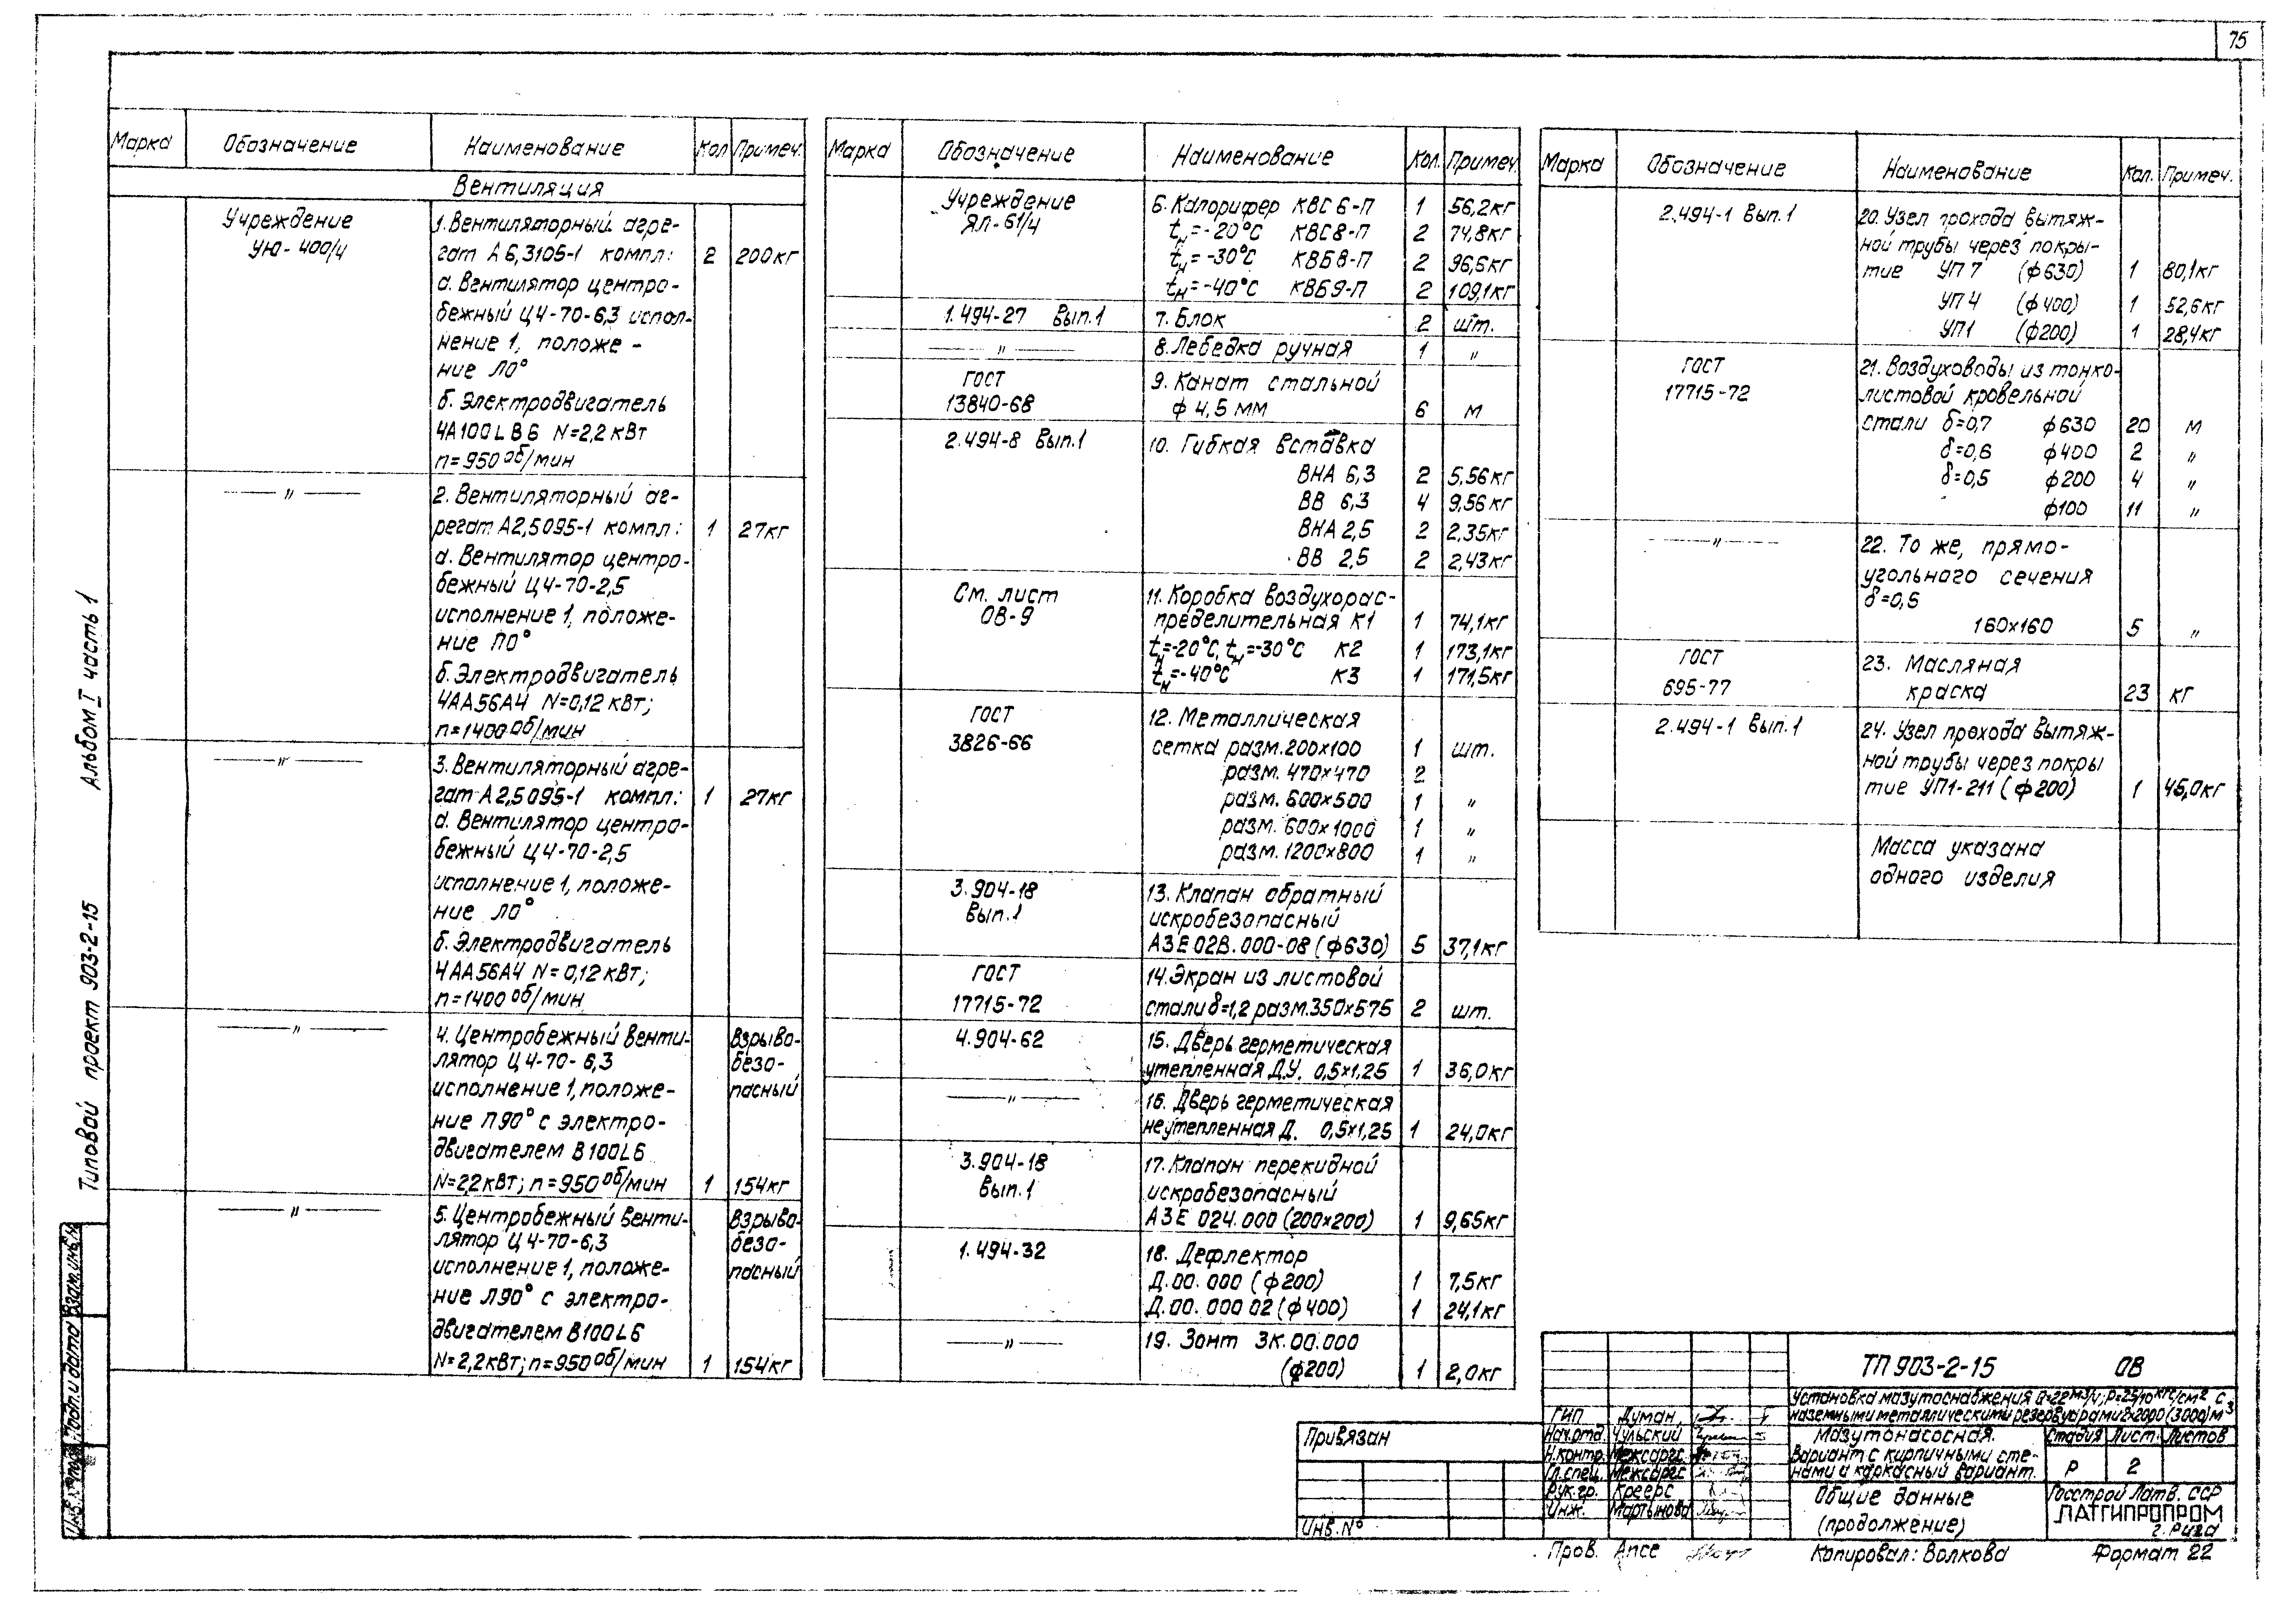 75
Марка Обозначение Наименование Кол Примеч.
Вентиляция
Учреждение
УЮ-400/4
1. Вентиляторный агре-
гат А6,3105-1 компл: 2 200кг
а. Вентилятор центро-
бежный Ц4-70-6,3 испол-
нение 1, положе-
ние Л0°
б. Электродвигатель
4А100LB6 N=2,2кВт
n=950об/мин
—〃— 2. Вентиляторный аг-
регат А2,5095-1 компл: 1 27кг
а. Вентилятор центро-
бежный Ц4-70-2,5
исполнение 1, положе-
ние П0°
б. Электродвигатель
4АА56А4 N=0,12кВт;
n=1400об/мин
—〃— 3. Вентиляторный агре-
гат А2,5095-1 компл: 1 27кг
а. Вентилятор центро-
бежный Ц4-70-2,5
исполнение 1, положе-
ние Л0°
б. Электродвигатель
4АА56А4 N=0,12кВт;
n=1400об/мин
—〃— 4. Центробежный венти- взрыво-
лятор Ц4-70-6,3 безо-
исполнение 1, положе- пасный
ние П90° с электро-
двигателем В100L6
N=2,2кВт; n=950об/мин 1 154кг
—〃— 5. Центробежный венти- взрыво-
лятор Ц4-70-6,3 безо-
исполнение 1, положе- пасный
ние Л90° с электро-
двигателем В100L6
N=2,2кВт; n=950об/мин 1 154кг
Марка Обозначение Наименование Кол. Примеч.
Учреждение 6. Калорифер КВС6-П 1 56,2кг
ЯЛ-61/4 tн=-20°С КВС8-П 2 74,8кг
tн=-30°С КВБ8-П 2 96,6кг
tн=-40°С КВБ9-П 2 109,1кг
1.494-27 Вып.1 7. Блок 2 шт.
—〃— 8. Лебедка ручная 1 〃
ГОСТ 9. Канат стальной
13840-68 ф 4,5 мм 6 м
2.494-8 Вып.1 10. Гибкая вставка
ВНА 6,3 2 5,56кг
ВВ 6,3 4 9,56кг
ВНА 2,5 2 2,35кг
ВВ 2,5 2 2,43кг
См. лист 11. Коробка воздухорас-
ОВ-9 пределительная К1 1 74,1кг
tн=-20°С, tн=-30°С К2 1 173,1кг
tн=-40°С К3 1 171,5кг
ГОСТ 12. Металлическая
3826-66 сетка разм.200х100 1 шт.
разм. 470х470 2
разм. 600х500 1 〃
разм. 600х1000 1 〃
разм. 1200х800 1 〃
3.904-18 13. Клапан обратный
Вып.1 искробезопасный
АЗЕ 02В.000-08 (ф630) 5 37,1кг
ГОСТ 14. Экран из листовой
17715-72 стали δ=1,2 разм.350х575 2 шт.
4.904-62 15. Дверь герметическая
утепленная Д.У. 0,5х1,25 1 36,0кг
—〃— 16. Дверь герметическая
неутепленная Д. 0,5х1,25 1 24,0кг
3.904-18 17. Клапан перекидной
Вып.1 искробезопасный
АЗЕ 024.000 (200х200) 1 9,65кг
1.494-32 18. Дефлектор
Д.00.000 (ф200) 1 7,5кг
Д.00.000 02 (ф400) 1 24,1кг
—〃— 19. Зонт ЗК.00.000
(ф200) 1 2,0кг
Марка Обозначение Наименование Кол. Примеч.
2.494-1 Вып.1 20. Узел прохода вытяж-
ной трубы через покры-
тие УП7 (ф630) 1 80,1кг
УП4 (ф400) 1 52,6кг
УП1 (ф200) 1 28,4кг
ГОСТ 21. Воздуховоды из тонко-
17715-72 листовой кровельной
стали δ=0,7 ф630 20 м
δ=0,6 ф400 2 〃
δ=0,5 ф200 4 〃
ф100 11 〃
—〃— 22. То же, прямо-
угольного сечения
δ=0,5
160х160 5 〃
ГОСТ 23. Масляная
695-77 краска 23 кг
2.494-1 Вып.1 24. Узел прохода вытяж-
ной трубы через покры
тие УП1-211 (ф200) 1 45,0кг
Масса указана
одного изделия
Альбом I часть 1
Типовой проект 903-2-15
Взам.инв.№
Подп.и дата
Инв.№подл.
Привязан
Инв.№
ТП 903-2-15 ОВ
Установка мазутоснабжения Q=22м³/ч; P=25/10кгс/см² с
наземными металлическими резервуарами 2х2000 (3000) м³
ГИП Думан
Нач.отд. Чульский
Н.контр. Межсаргс
Гл.спец. Межсаргс
Рук.гр. Креерс
Инж. Мартынова
Мазутонасосная.
Вариант с кирпичными сте-
нами и каркасный вариант.
Стадия Лист Листов
Р 2
Общие данные
(продолжение)
Госстрой Латв. ССР
ЛАТГИПРОПРОМ
г. Рига
Пров. Апсе
Копировал: Волкова Формат 22